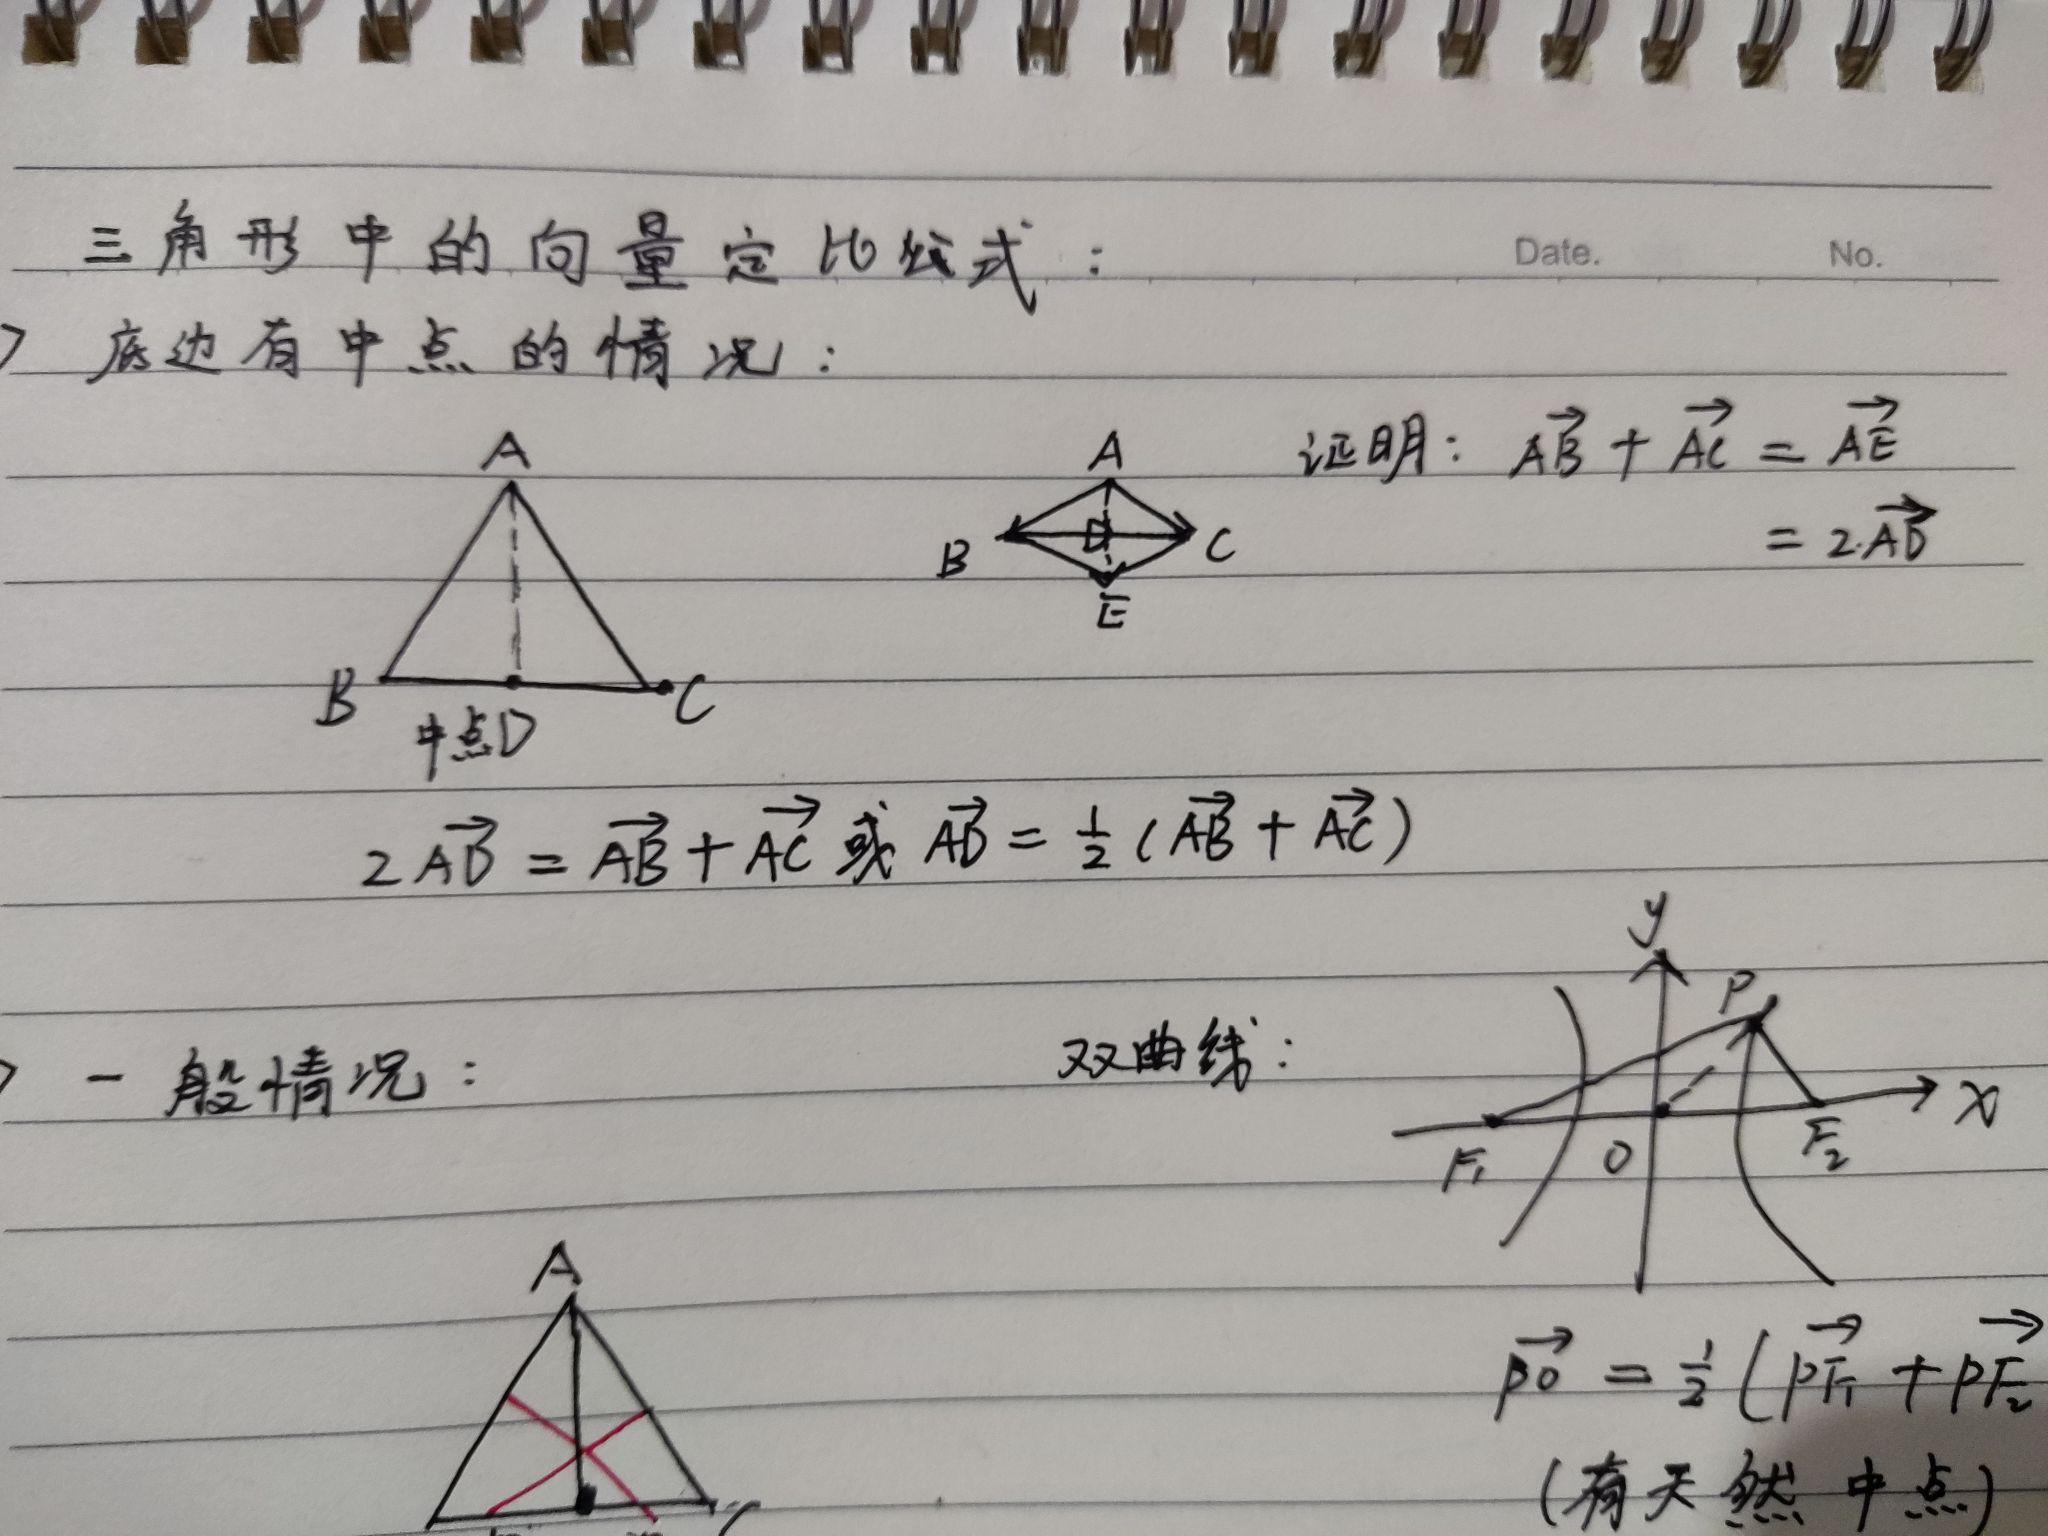 三角形中的向量定比公式：
Date. No.
底边有中点的情况：
A
B
C
中点D
A
B
C
D
E
证明：AB⃗ + AC⃗ = AE⃗
= 2·AD⃗
2AD⃗ = AB⃗ + AC⃗ 或 AD⃗ = ½ (AB⃗ + AC⃗)
一般情况：
双曲线：
y
P
x
F₁
O
F₂
A
C
PO⃗ = ½ (PF₁⃗ + PF₂⃗
(有天然中点)